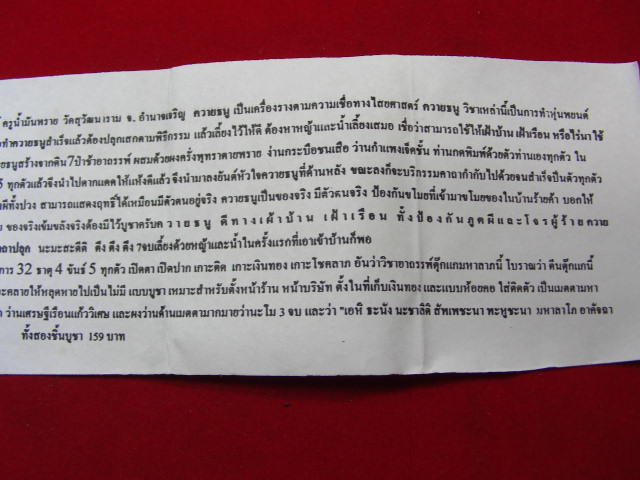 ครูน้ำมันพราย วัดสุวัฒนาราม จ. อำนาจเจริญ ควายธนู เป็นเครื่องรางตามความเชื่อทางไสยศาสตร์ ควายธนู วิชาเหล่านี้เป็นการทำหุ่นพยนต์
ทำควายธนูสำเร็จแล้วต้องปลุกเสกตามพิธีกรรม แล้วเลี้ยงไว้ให้ดี ต้องหาหญ้าและน้ำเลี้ยงเสมอ เชื่อว่าสามารถใช้ให้เฝ้าบ้าน เฝ้าเรือน หรือไร่นา ใช้
ยธนูสร้างจากดิน 7ป่าช้าอาถรรพ์ ผสมด้วยผงครั่งพุทราตายพราย งากระบือชนเสือ ว่านกำแพงเจ็ดชั้น ท่านกดพิมพ์ด้วยตัวท่านเองทุกตัว ใน
5 ทุกตัวแล้วจึงนำไปตากแดดให้แห้งดีแล้ว จึงนำมาลงยันต์หัวใจควายธนูที่ด้านหลัง ขณะลงก็จะบริกรรมคาถากำกับไปด้วยจนสำเร็จเป็นตัวทุกตัว
ผีทั้งปวง สามารถแสดงฤทธิ์ได้เหมือนมีตัวตนอยู่จริง ควายธนูเป็นของจริง มีตัวตนจริง ป้องกันขโมยที่เข้ามาขโมยของในบ้านร้ายค้า บอกให้
ของจริงเข้มขลังจริงต้องมีไว้บูชาครับ ควายธนู ดีทางเฝ้าบ้าน เฝ้าเรือน ทั้งป้องกันภูตผีและโจรผู้ร้าย ควาย
าปลุก นะมะสะตีติ ดึง ดึง ดึง 7จบเลี้ยงด้วยหญ้าและน้ำในครั้งแรกที่เอาเข้าบ้านก็พอ
การ 32 ธาตุ 4 ขันธ์ 5 ทุกตัว เปิดตา เปิดปาก เกาะติด เกาะเงินทอง เกาะโชคลาภ อันว่าวิชาอาถรรพ์ตุ๊กแกมหาลาภนี้ โบราณว่า ตีนตุ๊กแกนี้
ะคลายให้หลุดหายไปเป็นไม่มี แบบบูชา เหมาะสำหรับตั้งหน้าร้าน หน้าบริษัท ตั้งในที่เก็บเงินทอง และแบบห้อยคอ ใส่ติดตัว เป็นเมตตามหา
ว่านเศรษฐีเรือนแก้ววิเศษ และผงว่านด้านเมตตามากมายว่านะโม 3 จบ และว่า "เอหิ ธะนัง นะชาลิติ สัพเพชะนา พะหูชะนา มหาลาโภ อาคัจฉา
ทั้งสองชิ้นบูชา 159 บาท